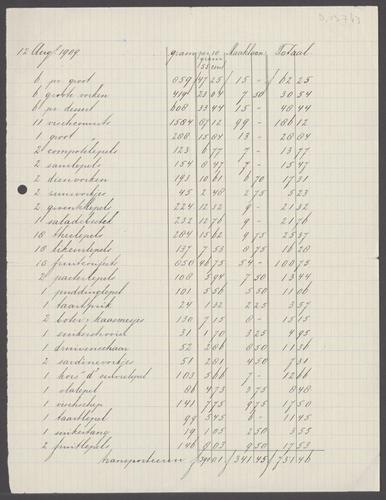 12 Augs 1909. gram per 10 gram 55 cent Maakloon Totaal
6 pr groot 859 47 25 15 - 62 25
6 groote vorken 419 23 04 7 50 30 54
6 pr dessert 608 33 44 15 - 48 44
18 vischcouverts 1584 87 12 99 - 186 12
1 groot 288 15 84 13 - 28 84
2 compotelepels 123 6 77 7 - 13 77
2 sauslepels 154 8 47 7 - 15 47
2 dienvorken 193 10 61 6 70 17 31
2 zuurvorkjes 45 2 48 2 75 5 23
2 groentelepels 224 12 32 9 - 21 32
1 saladebestek 232 12 76 9 - 21 76
18 theelepels 284 15 62 9 75 25 37
18 likeurlepels 137 7 53 8 75 16 28
18 fruitcouverts 850 46 75 54 - 100 75
2 pasteilepels 108 5 94 7 50 13 44
1 puddinglepel 101 5 56 5 50 11 06
1 taartprik 24 1 32 2 25 3 57
2 boter & kaasmesjes 130 7 15 8 - 15 15
1 suikerstrooier 31 1 70 3 25 4 95
1 druivenschaar 52 2 86 8 50 11 36
2 sardinevorkjes 51 2 81 4 50 7 31
1 hors d'oeuvrelepel 103 5 66 7 - 12 66
1 vlalepel 86 4 73 3 75 8 48
1 vischschep 141 7 75 9 75 17 50
1 taartlepel 99 5 45 6 - 11 45
1 suikertang 19 1 05 2 50 3 55
2 fruitlepels 146 8 03 9 50 17 53
transporteeren 390 01 341 45 731 46